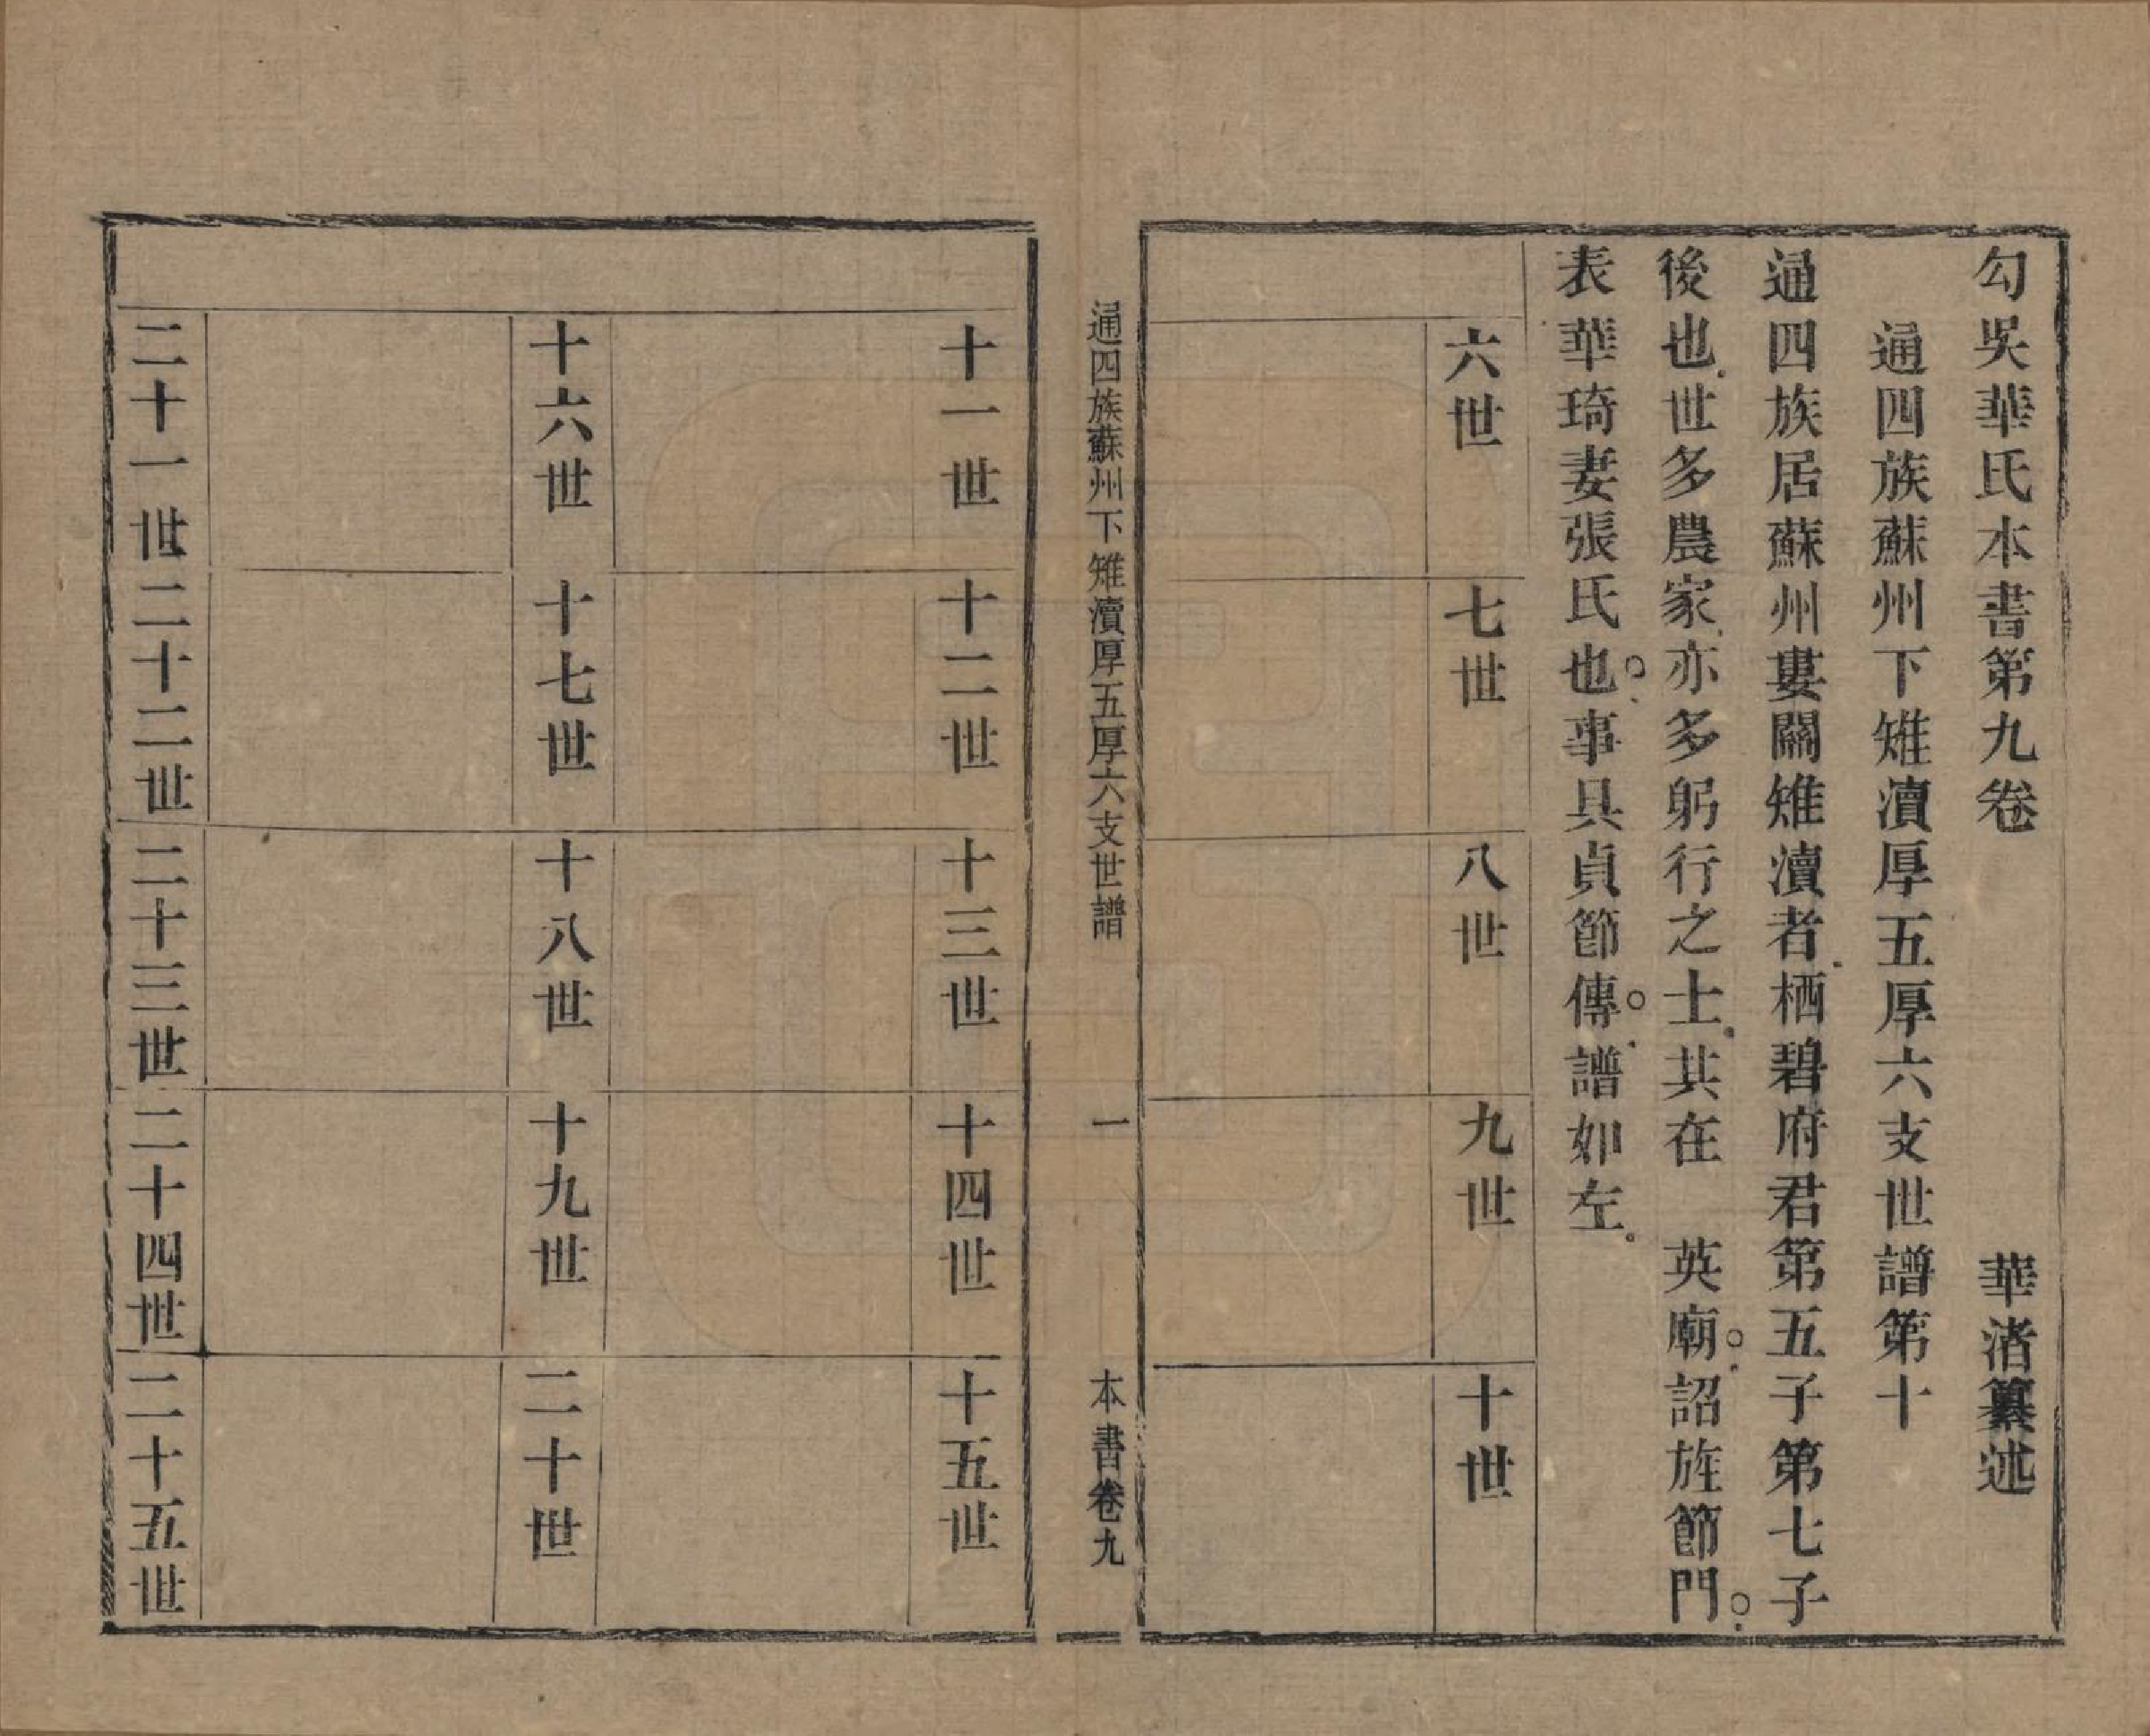 勾吳華氏本書第九卷　華渚纂述
通四族蘇州下雉瀆厚五厚六支世譜第十
通四族居蘇州婁關雉瀆者栖碧府君第五子第七子
後也世多農家亦多躬行之士其在　英廟詔旌節門
表華琦妻張氏也事具貞節傳譜如左
六世
七世
八世
九世
十世
通四族蘇州下雉瀆厚五厚六支世譜
一
本書卷九
十一世
十二世
十三世
十四世
十五世
十六世
十七世
十八世
十九世
二十世
二十一世
二十二世
二十三世
二十四世
二十五世